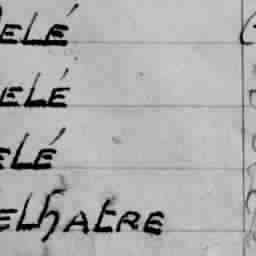 elé
elé
elé
elhatre